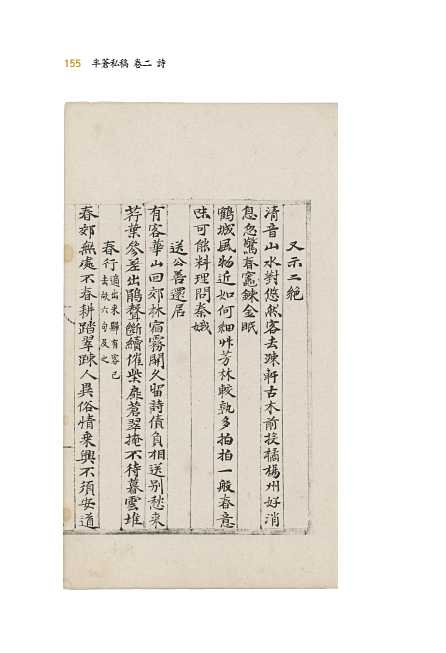 155 半蒼私稿 卷二 詩
又示二絶
淸音山水對悠然客去疎軒古木前授橘楊州好消
息忽驚春竈鍊金眠
鶴城風物近如何細艸芳林較孰多拍拍一般春意
味可能料理問秦娥
送公善還居
有客華山回郊林宿霧開久留詩債負相送別愁來
荇葉參差出鵑聲斷續催柴扉蒼翠掩不待暮雲堆
春行 適出來歸有客已
去故六句及之
春郊無處不春耕踏翠疎人異俗情乘興不須安道